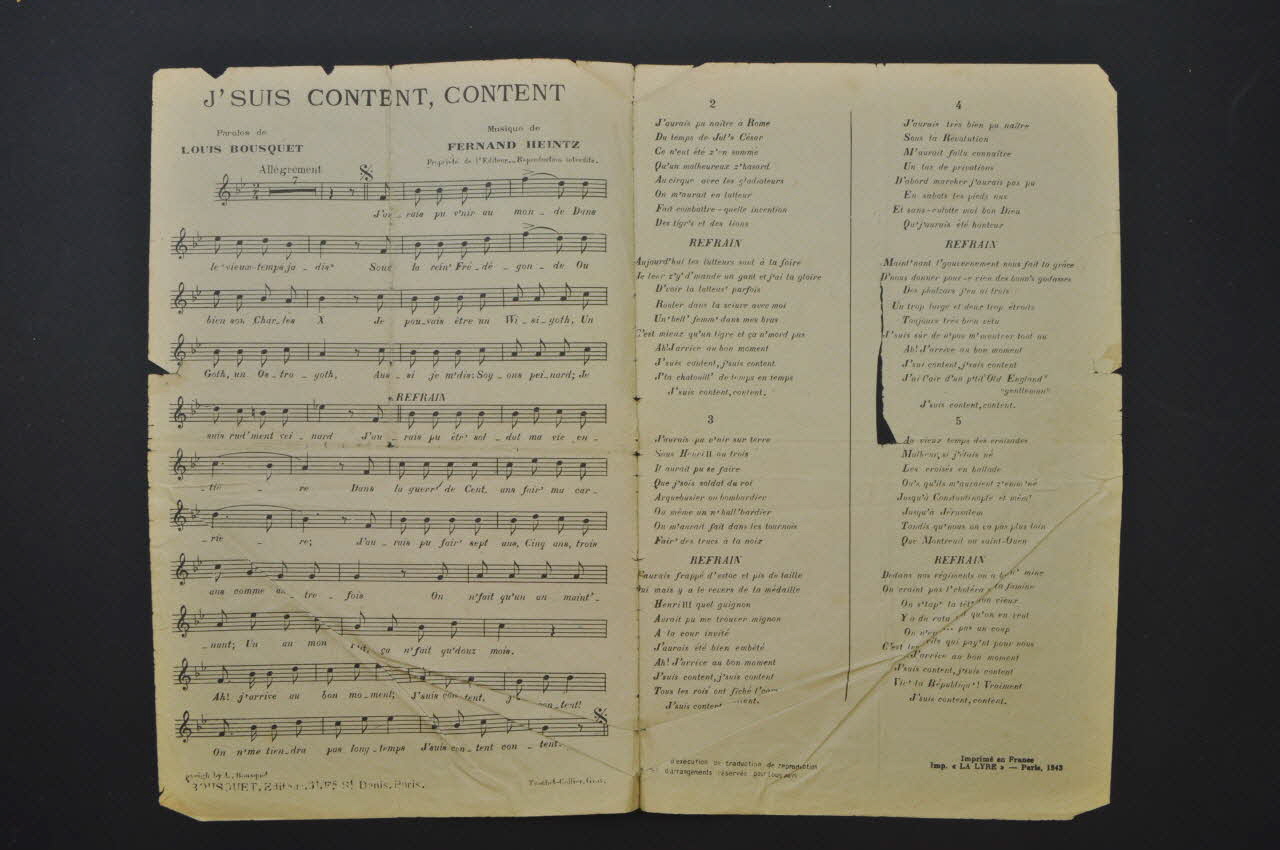 J'SUIS CONTENT, CONTENT
Paroles de
LOUIS BOUSQUET
Musique de
FERNAND HEINTZ
Propriété de l'Editeur._Reproduction interdite.
Allégrement
7
2 4
J'au_rais pu v'nir au mon_de Dans
le vieux temps ja_dis' Sous la rein' Fré_dé_gon_de Ou
bien sou Char_les X Je pou_vais être un Wi_si_goth, Un
Goth, un Os_tro_goth, Aus_si je m'dis: Soy_ons pei_nard; Je
REFRAIN
suis rud'ment vei_nard J'au_rais pu êtr' sol_dat ma vie en_
_tiè_re Dans la guerr' de Cent ans fair' ma car_
_riè_re; J'au_rais pu fair' sept ans, Cinq ans, trois
ans comme au_tre_fois On n'fait qu'un an maint'_
_nant; Un an mon ça n'fait qu'douz' mois.
Ah! j'arrive au bon mo_ment; J'suis con_tent, con_tent!
On n'me tien_dra pas long_temps J'suis con_tent con_tent.
by L. Bousquet
BOUSQUET, Editeur, St Denis, Paris.
2
J'aurais pu naître à Rome
Du temps de Jul's César
Ce n'eut été z'en somme
Qu'un malheureux z'hasard
Au cirque avec les gladiateurs
On m'aurait en lutteur
Fait combattre_quelle invention
Des tigr's et des lions
REFRAIN
Aujourd'hui les lutteurs sont à la foire
Je leur z'y d'mande un gant et j'ai la gloire
D'voir la lutteus' parfois
Rouler dans la sciure avec moi
Un' bell' femm' dans mes bras
C'est mieux qu'un tigre et ça n'mord pas
Ah! J'arrive au bon moment
J'suis content, j'suis content
J'la chatouill' de temps en temps
J'suis content, content.
3
J'aurais pu v'nir sur terre
Sous Henri II ou trois
Il aurait pu se faire
Que j'sois soldat du roi
Arquebusier ou bombardier
Ou même un n'hall'bardier
On m'aurait fait dans les tournois
Fair' des trucs à la noix
REFRAIN
J'aurais frappé d'estoc et pis de taille
Oui mais y a le revers de la médaille
Henri III quel guignon
Aurait pu me trouver mignon
A la cour invité
J'aurais été bien embêté
Ah! J'arrive au bon moment
J'suis content, j'suis content
Tous les rois ont fiché l'camp
J'suis content, content.
d'exécution de traduction de reproduction
d'arrangements réservés pour tous pays
4
J'aurais très bien pu naître
Sous la Révolution
M'aurait fallu connaître
Un tas de privations
D'abord marcher j'aurais pas pu
En sabots les pieds nus
Et sans-culotte moi bon Dieu
Qu'j'aurais été honteux
REFRAIN
Maint'nant l'gouvernement nous fait la grâce
D'nous donner pour-e rien des bonn's godasses
Des phalzars j'en ai trois
Un trop large et deux trop étroits
Toujours très bien vêtu
J'suis sûr de n'pas m'montrer tout nu
Ah! J'arrive au bon moment
J'sui content, j'suis content
J'ai l'air d'un p'tit "Old England"
"gentleman"
J'suis content, content.
5
Au vieux temps des croisades
Malheur, si j'étais né
Les croisés en ballade
Ous qu'ils m'auraient z'emm'né
Jusqu'à Constantinople et mêm'
Jusqu'à Jérusalem
Tandis qu'nous on va pas plus loin
Que Montreuil ou saint-Ouen
REFRAIN
Dedans nos régiments on a bonn' mine
On craint pas l'choléra la famine
On s'tap' la têt' mon vieux
Y a du rata qu'on en veut
On pas un coup
C'est qui pay'nt pour nous
J'arrive au bon moment
J'suis content, j'suis content
Viv' la Républiqu'! Vraiment
J'suis content, content.
Imprimé en France
Imp. « LA LYRE » — Paris, 1943